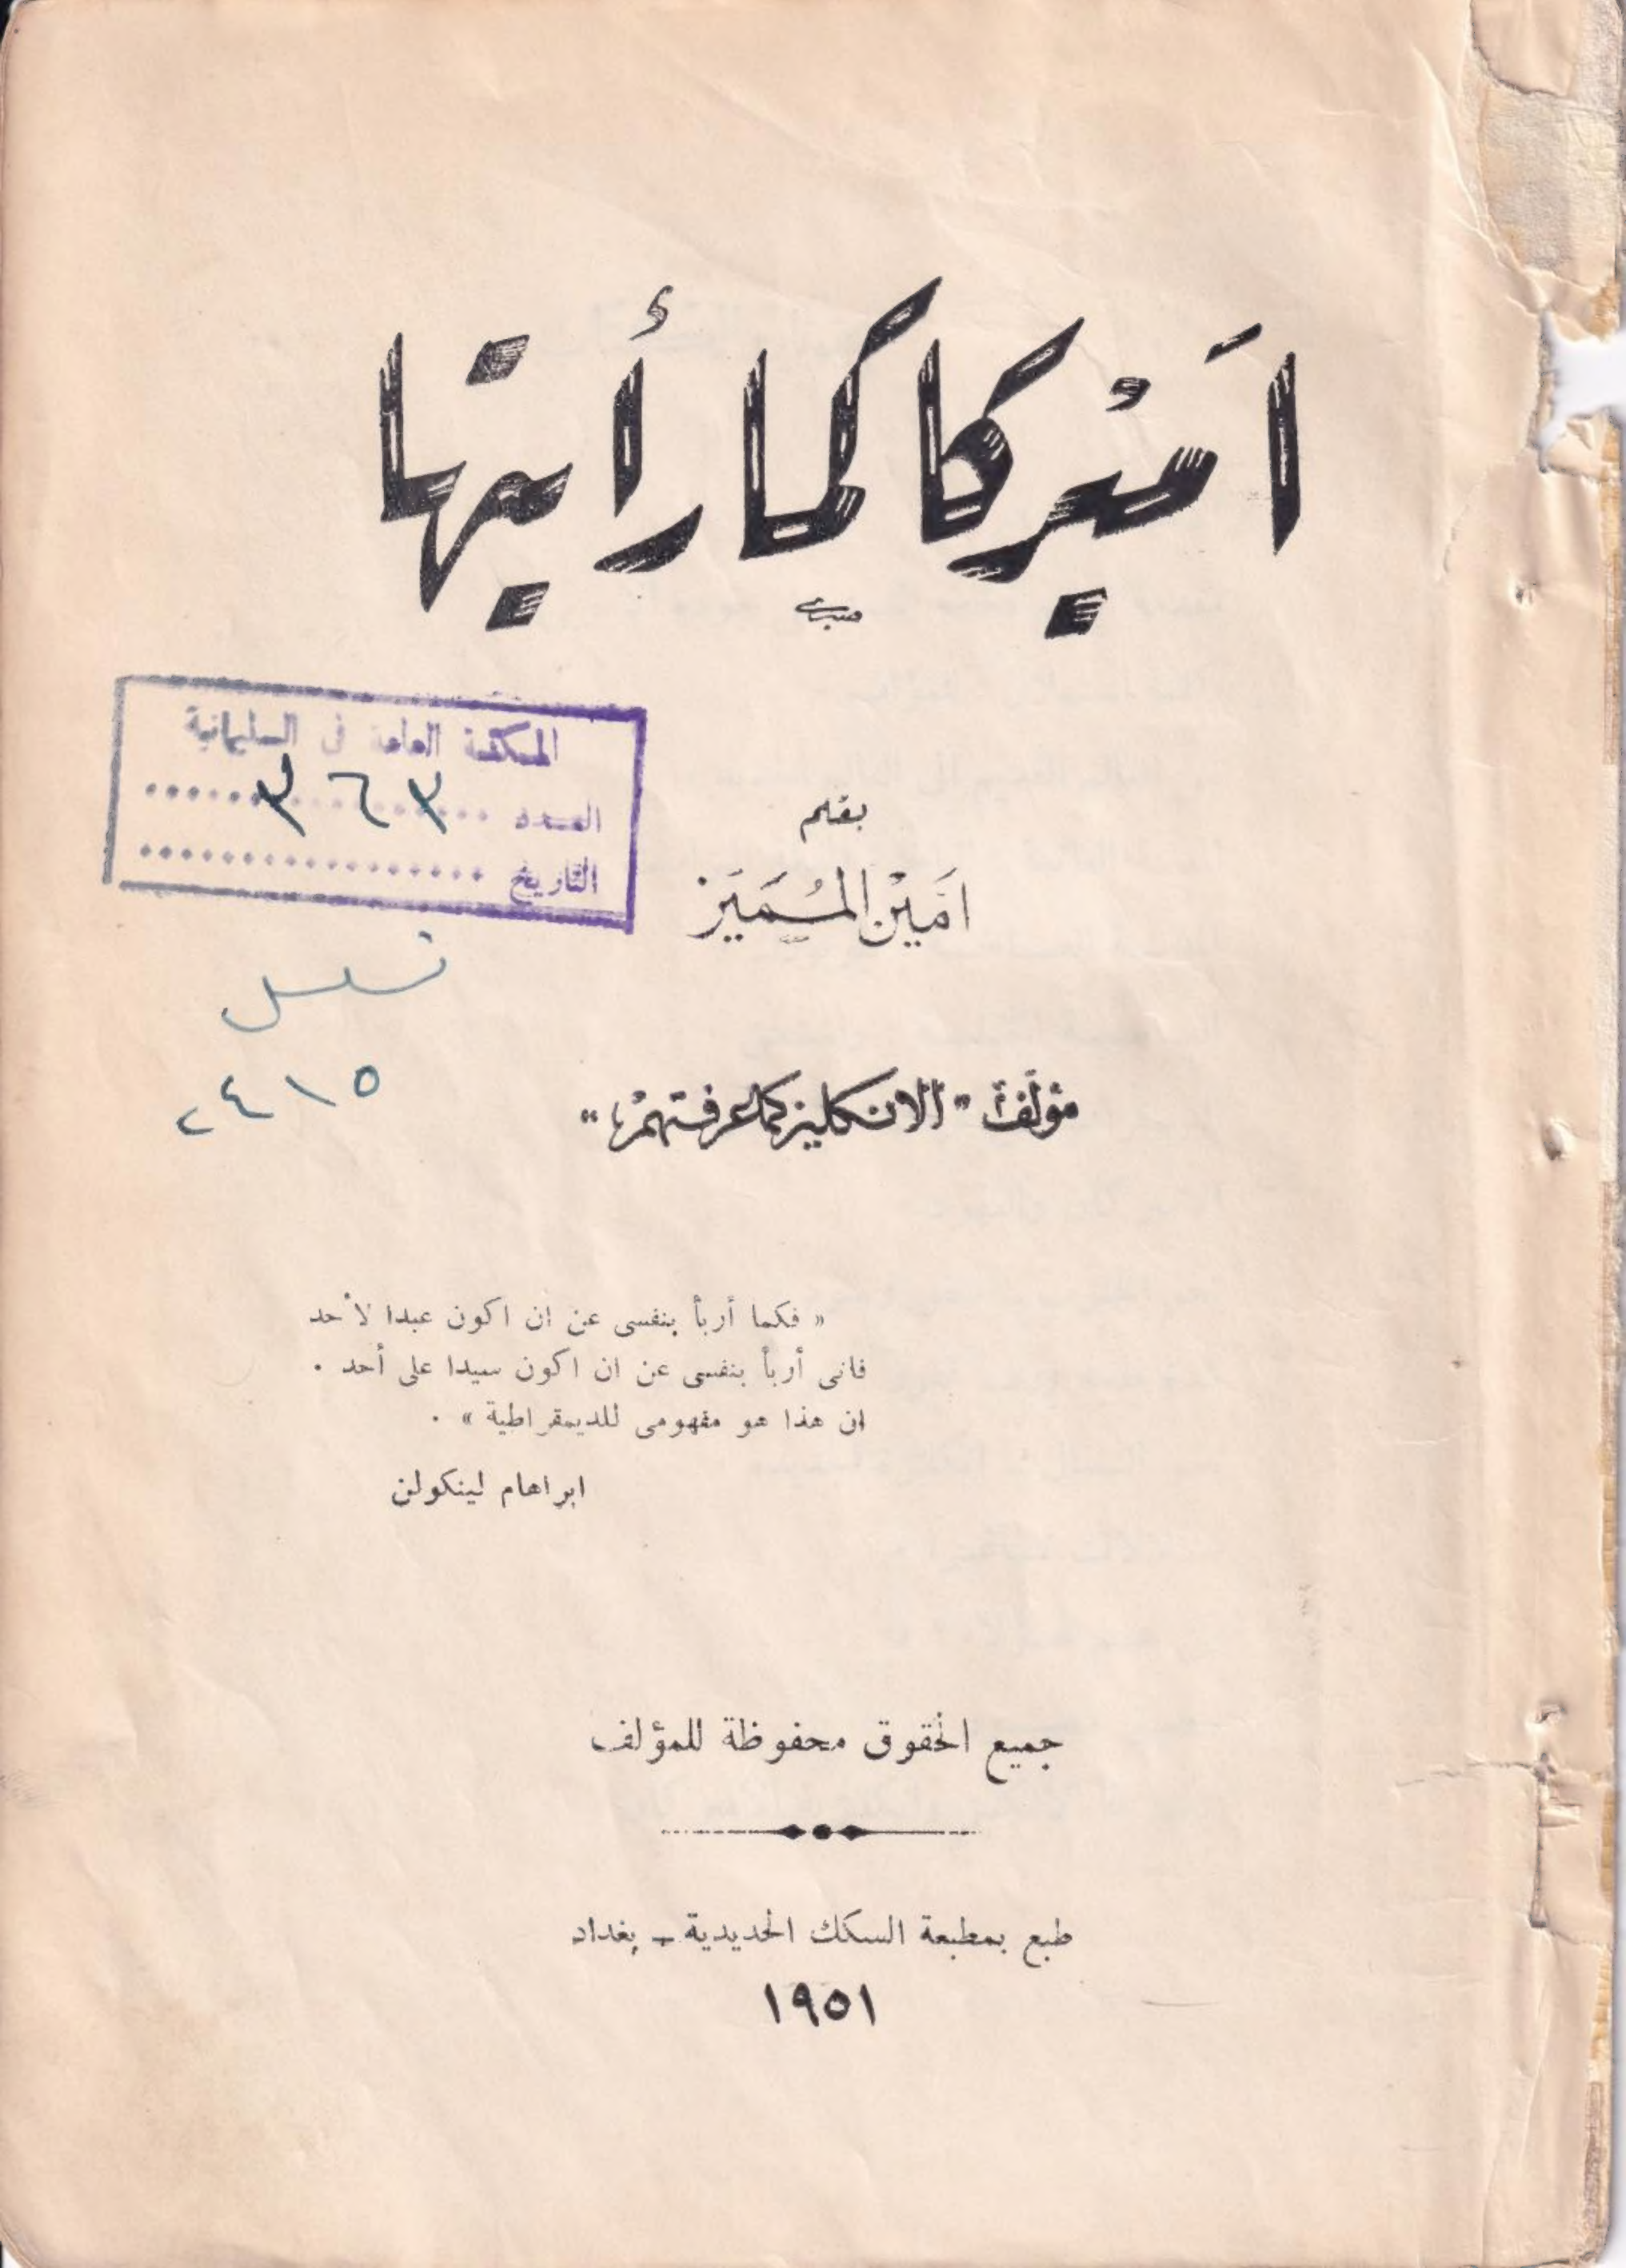 اَميْركا كما رأيتها
صبري
المكتبة العامة في السليمانية
العدد ٣٦٣
التاريخ
بقلم
امَيْن المُميَز
تسلسل
٢٤١٥
مؤلف "الانكليز كما عرفتهم"
« فكما أربأ بنفسى عن ان اكون عبدا لأحد
فانى أربأ بنفسى عن ان اكون سيدا على أحد .
ان هذا هو مفهومى للديمقراطية » .
ابراهام لينكولن
جميع الحقوق محفوظة للمؤلف
طبع بمطبعة السكك الحديدية - بغداد
١٩٥١